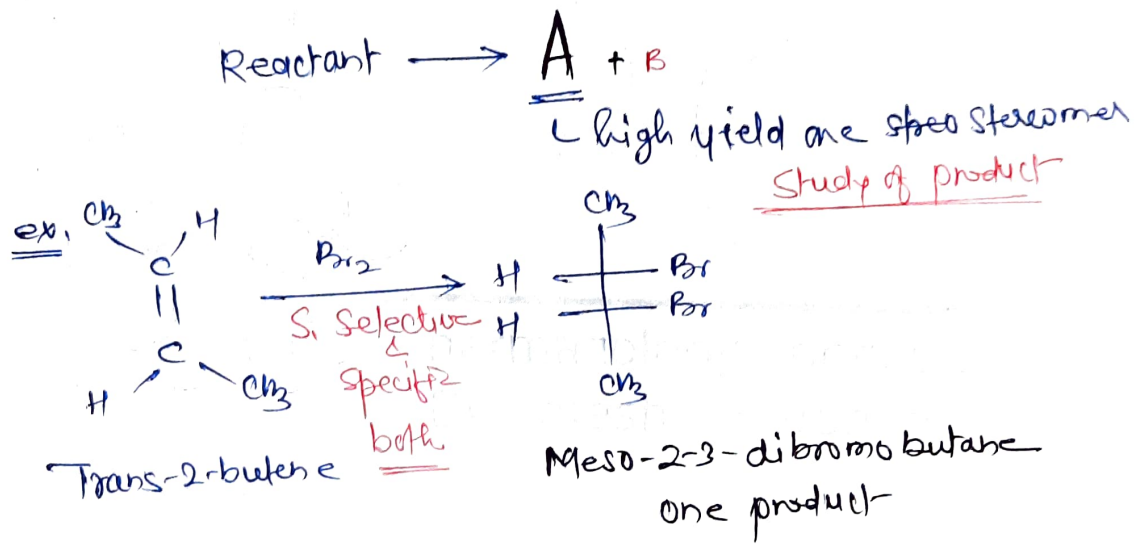 Reactant → A + B
high yield one speo stereomer
Study of product
ex. CH3 H
C
Br2
S. Selective
&
specific
both
C
H CH3
Trans-2-butene
CH3
H Br
H Br
CH3
Meso-2-3-dibromobutane
one product